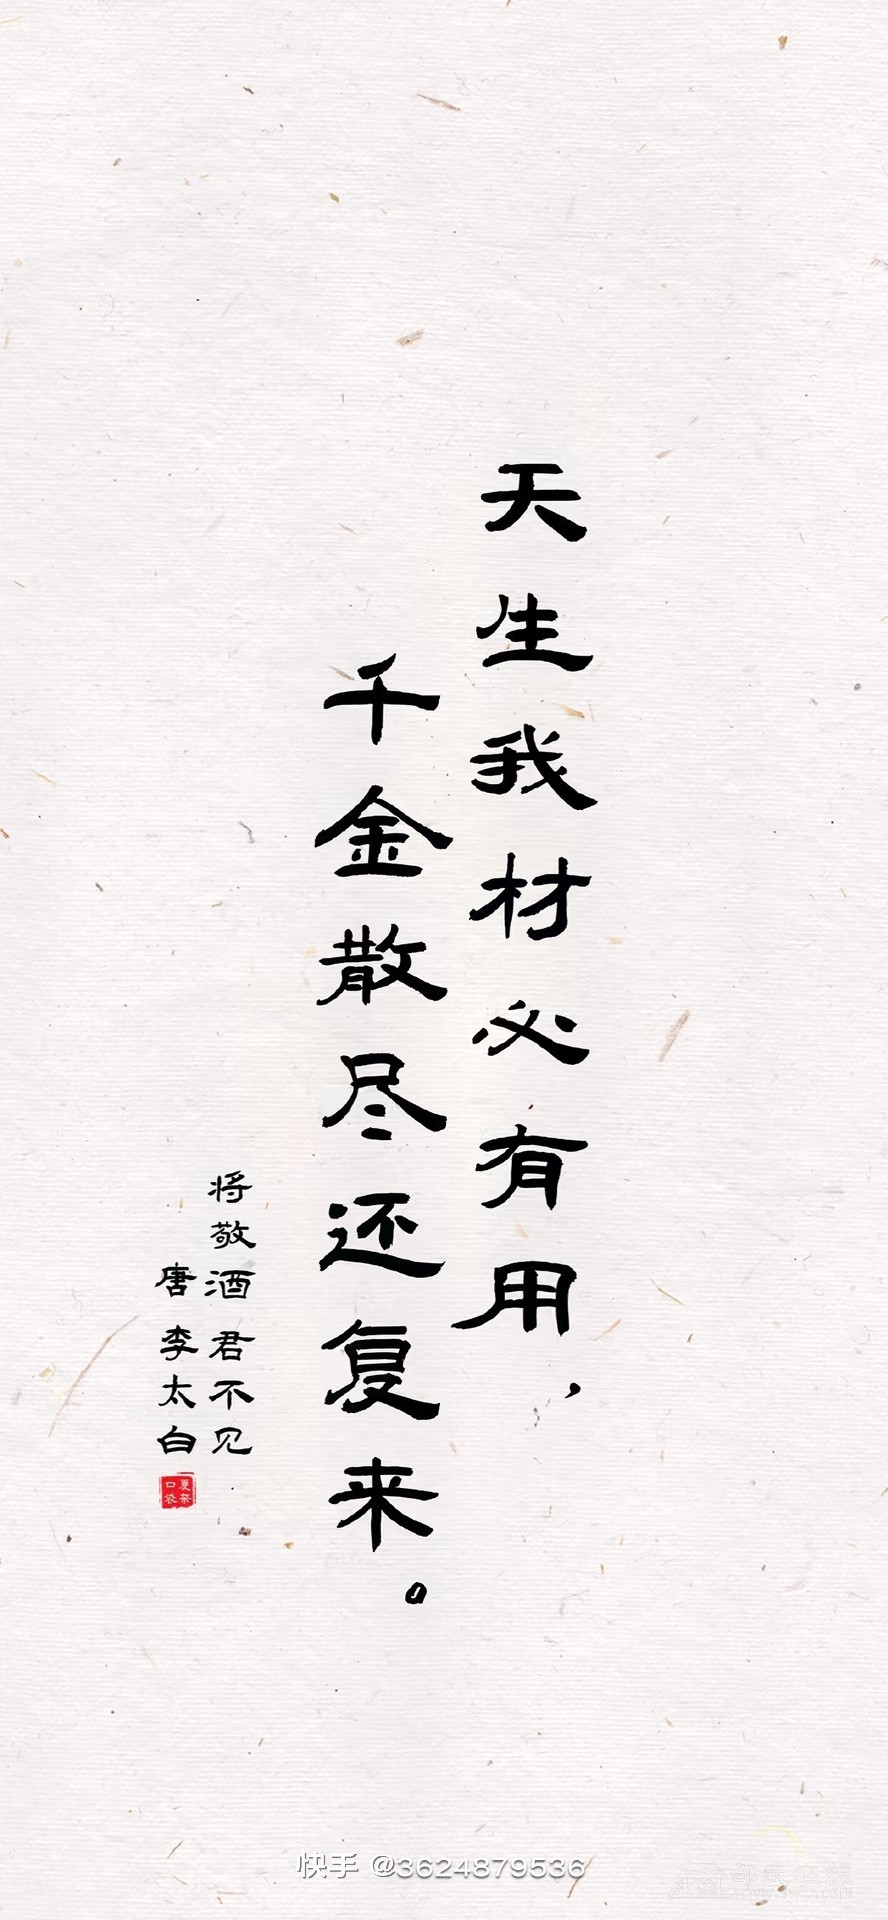 天生我材必有用，
千金散尽还复来。
将敬酒 君不见
唐 李太白
夏奈
口袋
快手 @3624879536